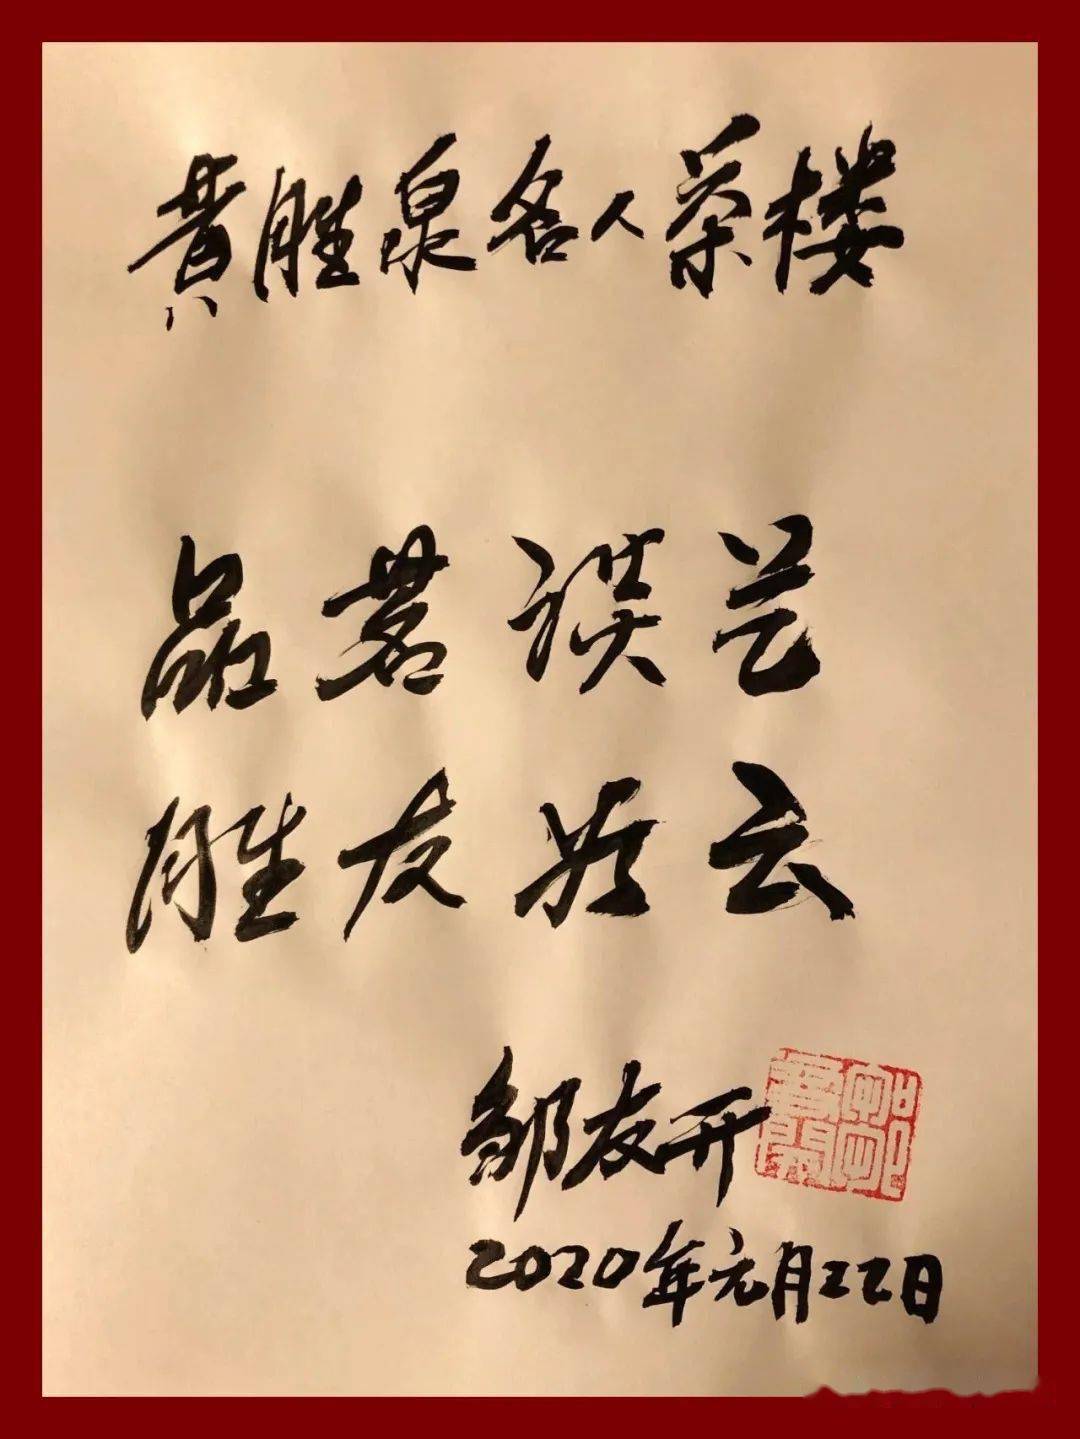 黄胜泉名人茶楼
品茗谈艺
胜友如云
邹友开
2020年元月22日